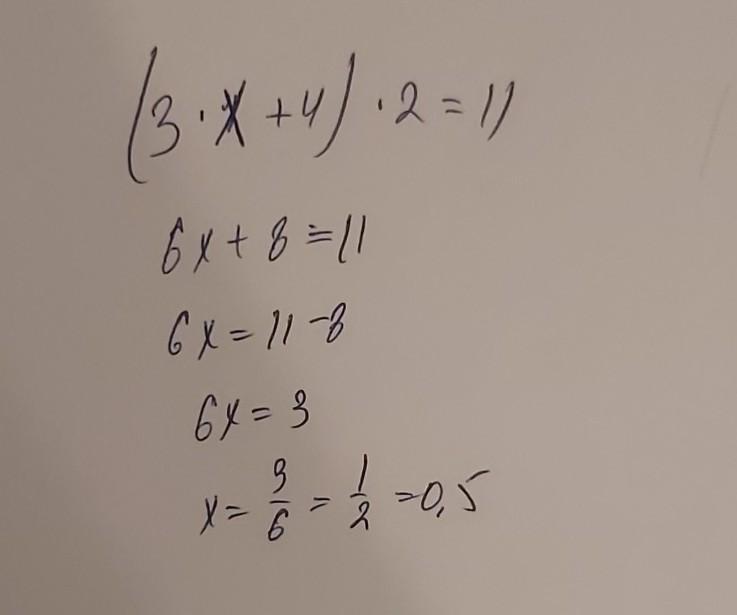 (3 · x + 4) · 2 = 11
6x + 8 = 11
6x = 11 - 8
6x = 3
x = 3/6 = 1/2 = 0,5